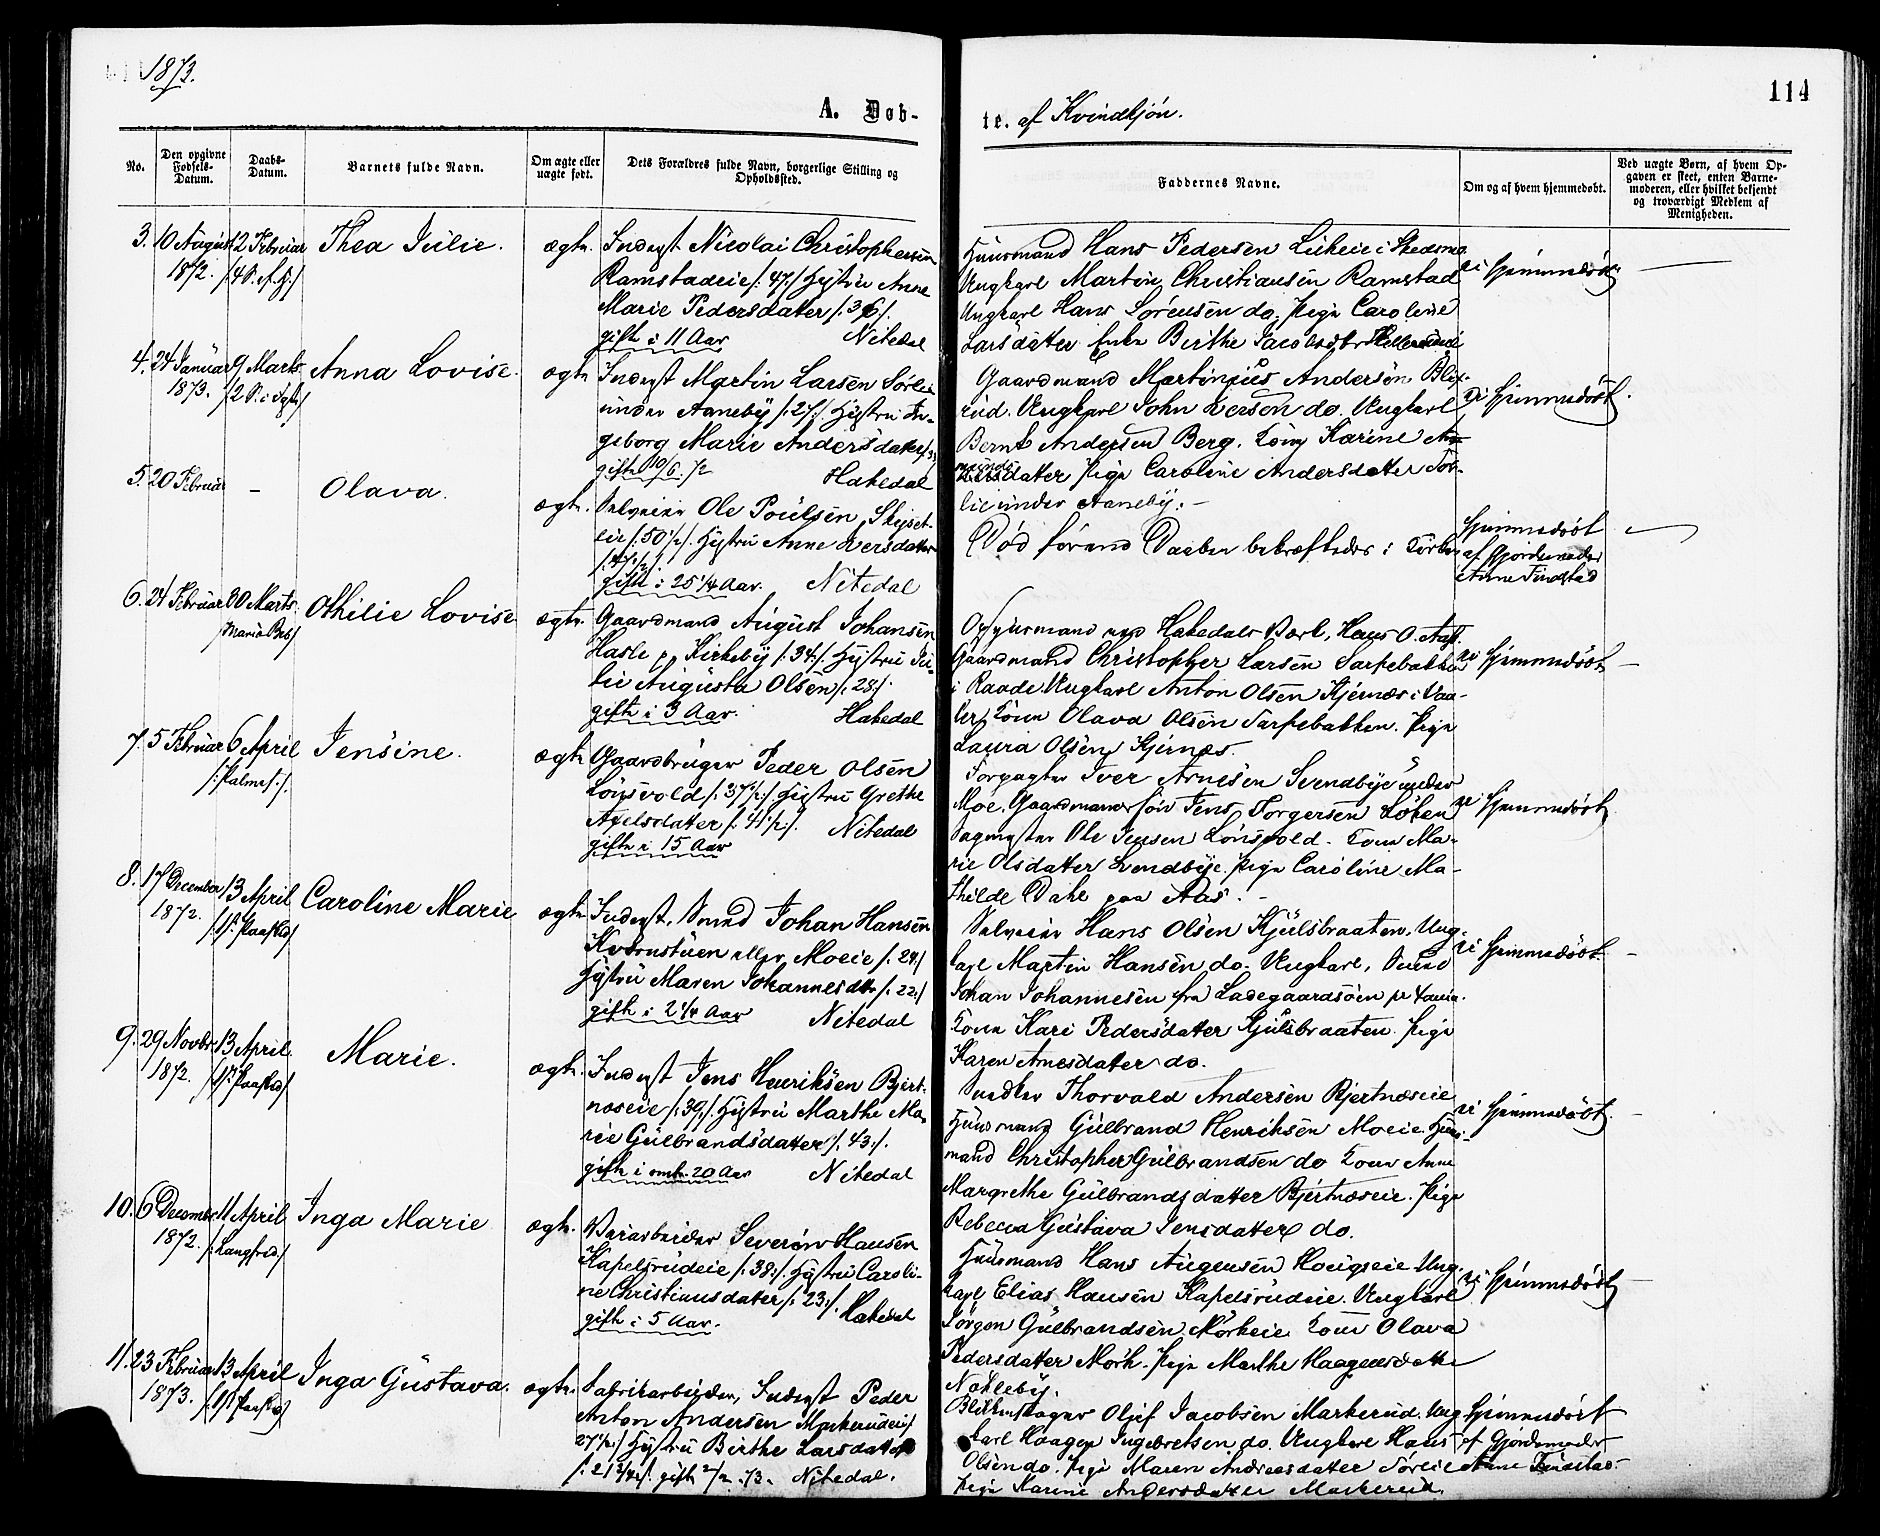 1873.
114
A. Døb-
te. af Kvindkjön.
No.
Den opgivne Fødsels-Datum.
Daabs-Datum.
Barnets fulde Navn.
Om ægte eller uægte født.
Dets Forældres fulde Navn, borgerlige Stilling og Opholdssted.
Faddernes Navne.
Om og af hvem hjemmedøbt.
Ved uægte Børn, af hvem Op-
gaven er skeet, enten Barne-
moderen, eller hvilket bekjendt
og troværdigt Medlem af
Menigheden.
3. 10 August 2 Februar Thea Julie. ægte. Inderst Nicolai Christophersen
1872. /4 S. e. H. 3 K./ Ramstadeie /:47:/ Hustru Anne
Marie Pedersdatter /:36:/.
gifte i 11 Aar Nitedal
Huusmand Hans Pedersen Lieheie i Skedsmo
Ungkarl Martin Christiansen Ramstad
Ungkarl Hans Sörensen do. Pige Caroline
Larsdatter Enke Birthe Jacobsdtr
ei hjemmedöbt
4. 24 Januar 9 Marts Anna Lovise. ægte Inderst Martin Larsen Sörlie
1873. /2 S. i Faste/ under Aaneby /:27:/ Hustru In-
geborg Marie Andersdatter
gifte 10/6 72 Hakedal
Gaardmand Martinius Andersen Blek-
rud. Ungkarl John Larsen do. Ungkarl
Bernt Andersen Berg. Kone Karine
datter Pige Caroline Andersdatter Sör-
lie under Aaneby. -
ei hjemmedöbt.
5. 20 Februar - Olava. ægte. Selveier Ole Poulsen Skyset-
eie /:50½:/. Hustru Anne Larsdatter
/:47½:/.
gifte i 25¼ Aar. Nitedal
Död förend Daaben bekræftedes i Kirken
Hjemmedöbt
af Gjordemoder
Anne Findstad
6. 24 Februar 30 Marts Othilie Lovise ægte. Gaardmand August Johansen
/Maria Beb/ Hasle p. Kirkeby /:34:/. Hustru Ju-
lie Augusta Olsen /:28:/.
gifte i 3 Aar. Hakedal
Opsynsmand ved Hakedals Værk, Hans O. Aas.
Gaardmand Christopher Larsen Sarpebakken
i Raade Ungkarl Anton Olsen Kjernæs i Vaa-
ler, Kone Olava Olsen Sarpebakken. Pige
Laura Olsen Kjernæs
ei hjemmedöbt
7. 5 Februar 6 April Jensine. ægte Gaardbruger Peder Olsen
/:Palmes:/. Lönsvold /:37½:/ Hustru Grethe
Axelsdatter /:41½:/.
gifte i 15 Aar Nitedal
Forpagter Iver Arnesen Svendbye under
Moe. Gaardmandssön Jens Torgersen Löken
Sagmester Ole Jensen Lönsvold. Kone Ma-
rie Olsdatter Svendbye. Pige Caroline Ma-
thilde Dahl paa Aas. -
ei hjemmedöbt
8. 17 December 13 April Caroline Marie ægte Inderst, Smed Johan Hansen
1872. /:1ste Paaskd/ Kvernstuen eller Moeie /:24:/
Hustru Maren Johannesdtr /:22:/
gifte i 2¼ Aar Nitedal
Selveier Hans Olsen Kjulsbraaten. Ung-
karl Martin Hansen do. Ungkarl, Smed
Johan Johannesen fra Ladegaardsöen pr
Kone Kari Pedersdatter Kjulsbraaten. Pige
Karen Arnesdatter do.
ei hjemmedöbt.
9. 29 Novbr. 13 April Marie. ægte. Inderst Jens Henriksen Bjert-
1872. /:1ste Paaskd/ næseie /:39:/. Hustru Marthe Ma-
rie Gulbrandsdatter /:43:/.
gifte i omtr. 20 Aar Nitedal
Snedker Thorvald Andersen Bjertnæseie
Huusmand Gulbrand Henriksen Moeie. Huus-
mand Christopher Gulbrandsen do Kone Anne
Margrethe Gulbrandsdatter Bjertnæseie. Pige
Rebecca Gustava Jensdatter do.
ei hjemmedöbt.
10. 6 December 11 April Inga Marie ægte. Veiarbeider Severin Hansen
1872. /:Langfred./ Kapelsrudeie /:38:/. Hustru Caroli-
ne Christiansdatter /:23:/.
gifte i 5 Aar. Hakedal
Huusmand Hans Augensen Houigseie Ung-
karl Elias Hansen Kapelsrudeie. Ungkarl
Jörgen Gulbrandsen Mörkeie Kone Olava
Pedersdatter Mörk. Pige Marthe Haagensdatter
Nokleby.
ei hjemmedöbt
11. 23 Februar 13 April Inga Gustava. ægte. Fabrikarbeider, Inderst Peder
1873. /:1ste Paaskd/ Anton Andersen Markerudeie /
27½:/ Hustru Birthe Larsdatter
/:21¾:/. gifte 2/2 73. Nitedal.
Blikkenslager Olef Jacobsen Markerud. Ung-
karl Haagen Ingebretsen do. Ungkarl Hans
Olsen do. Pige Maren Andreasdatter Sörlie
Pige Karine Andersdatter Markerud.
Hjemmedöbt
af Gjordemoder
Anne Findstad.